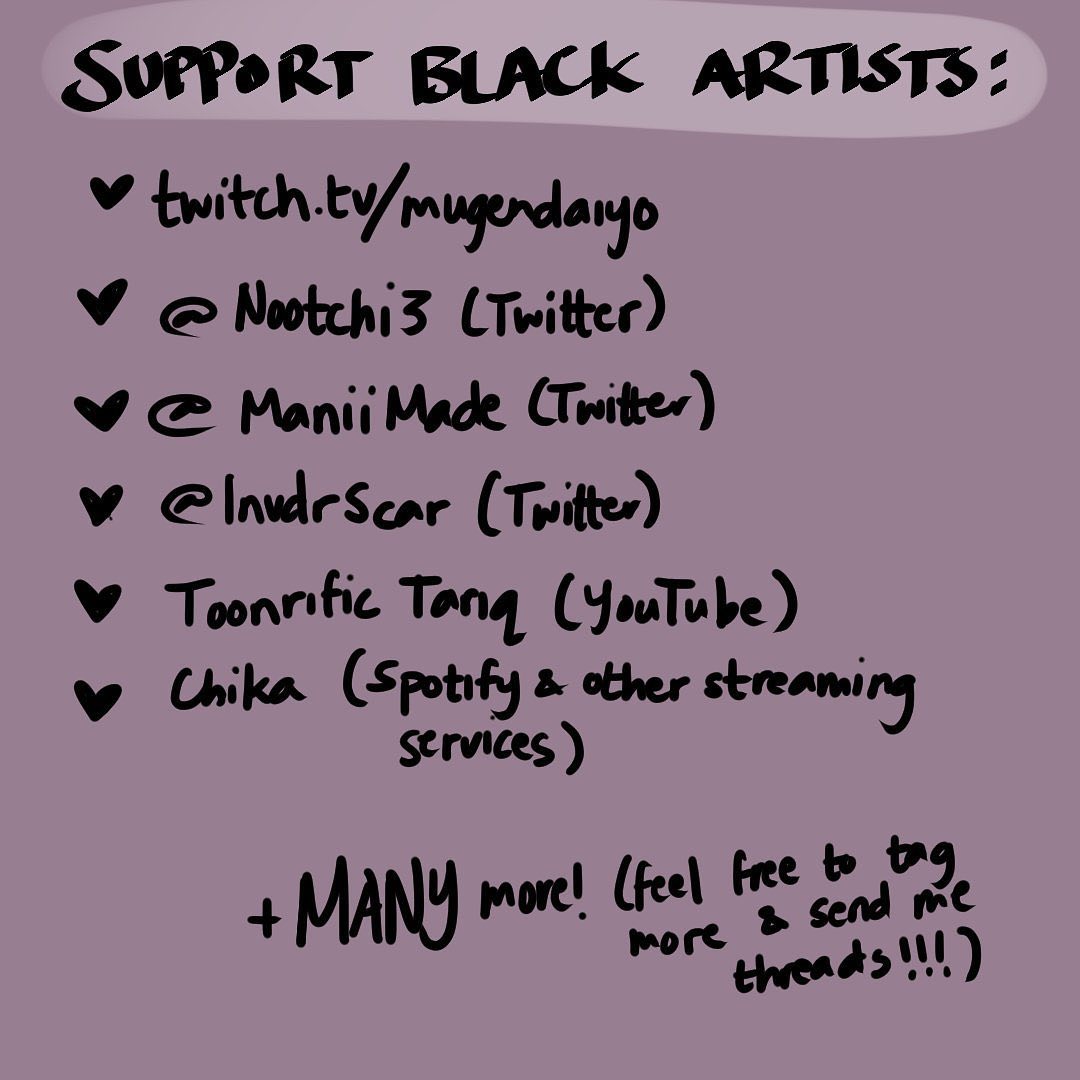 SUPPORT BLACK ARTISTS:
♥ twitch.tv/mugendaiyo
♥ @Nootchi3 (Twitter)
♥ @ManiiMade (Twitter)
♥ @InvdrScar (Twitter)
♥ Toonrific Tariq (YouTube)
♥ Chika (Spotify & other streaming
services)
+ MANY more! (feel free to tag
more & send me
threads!!!)